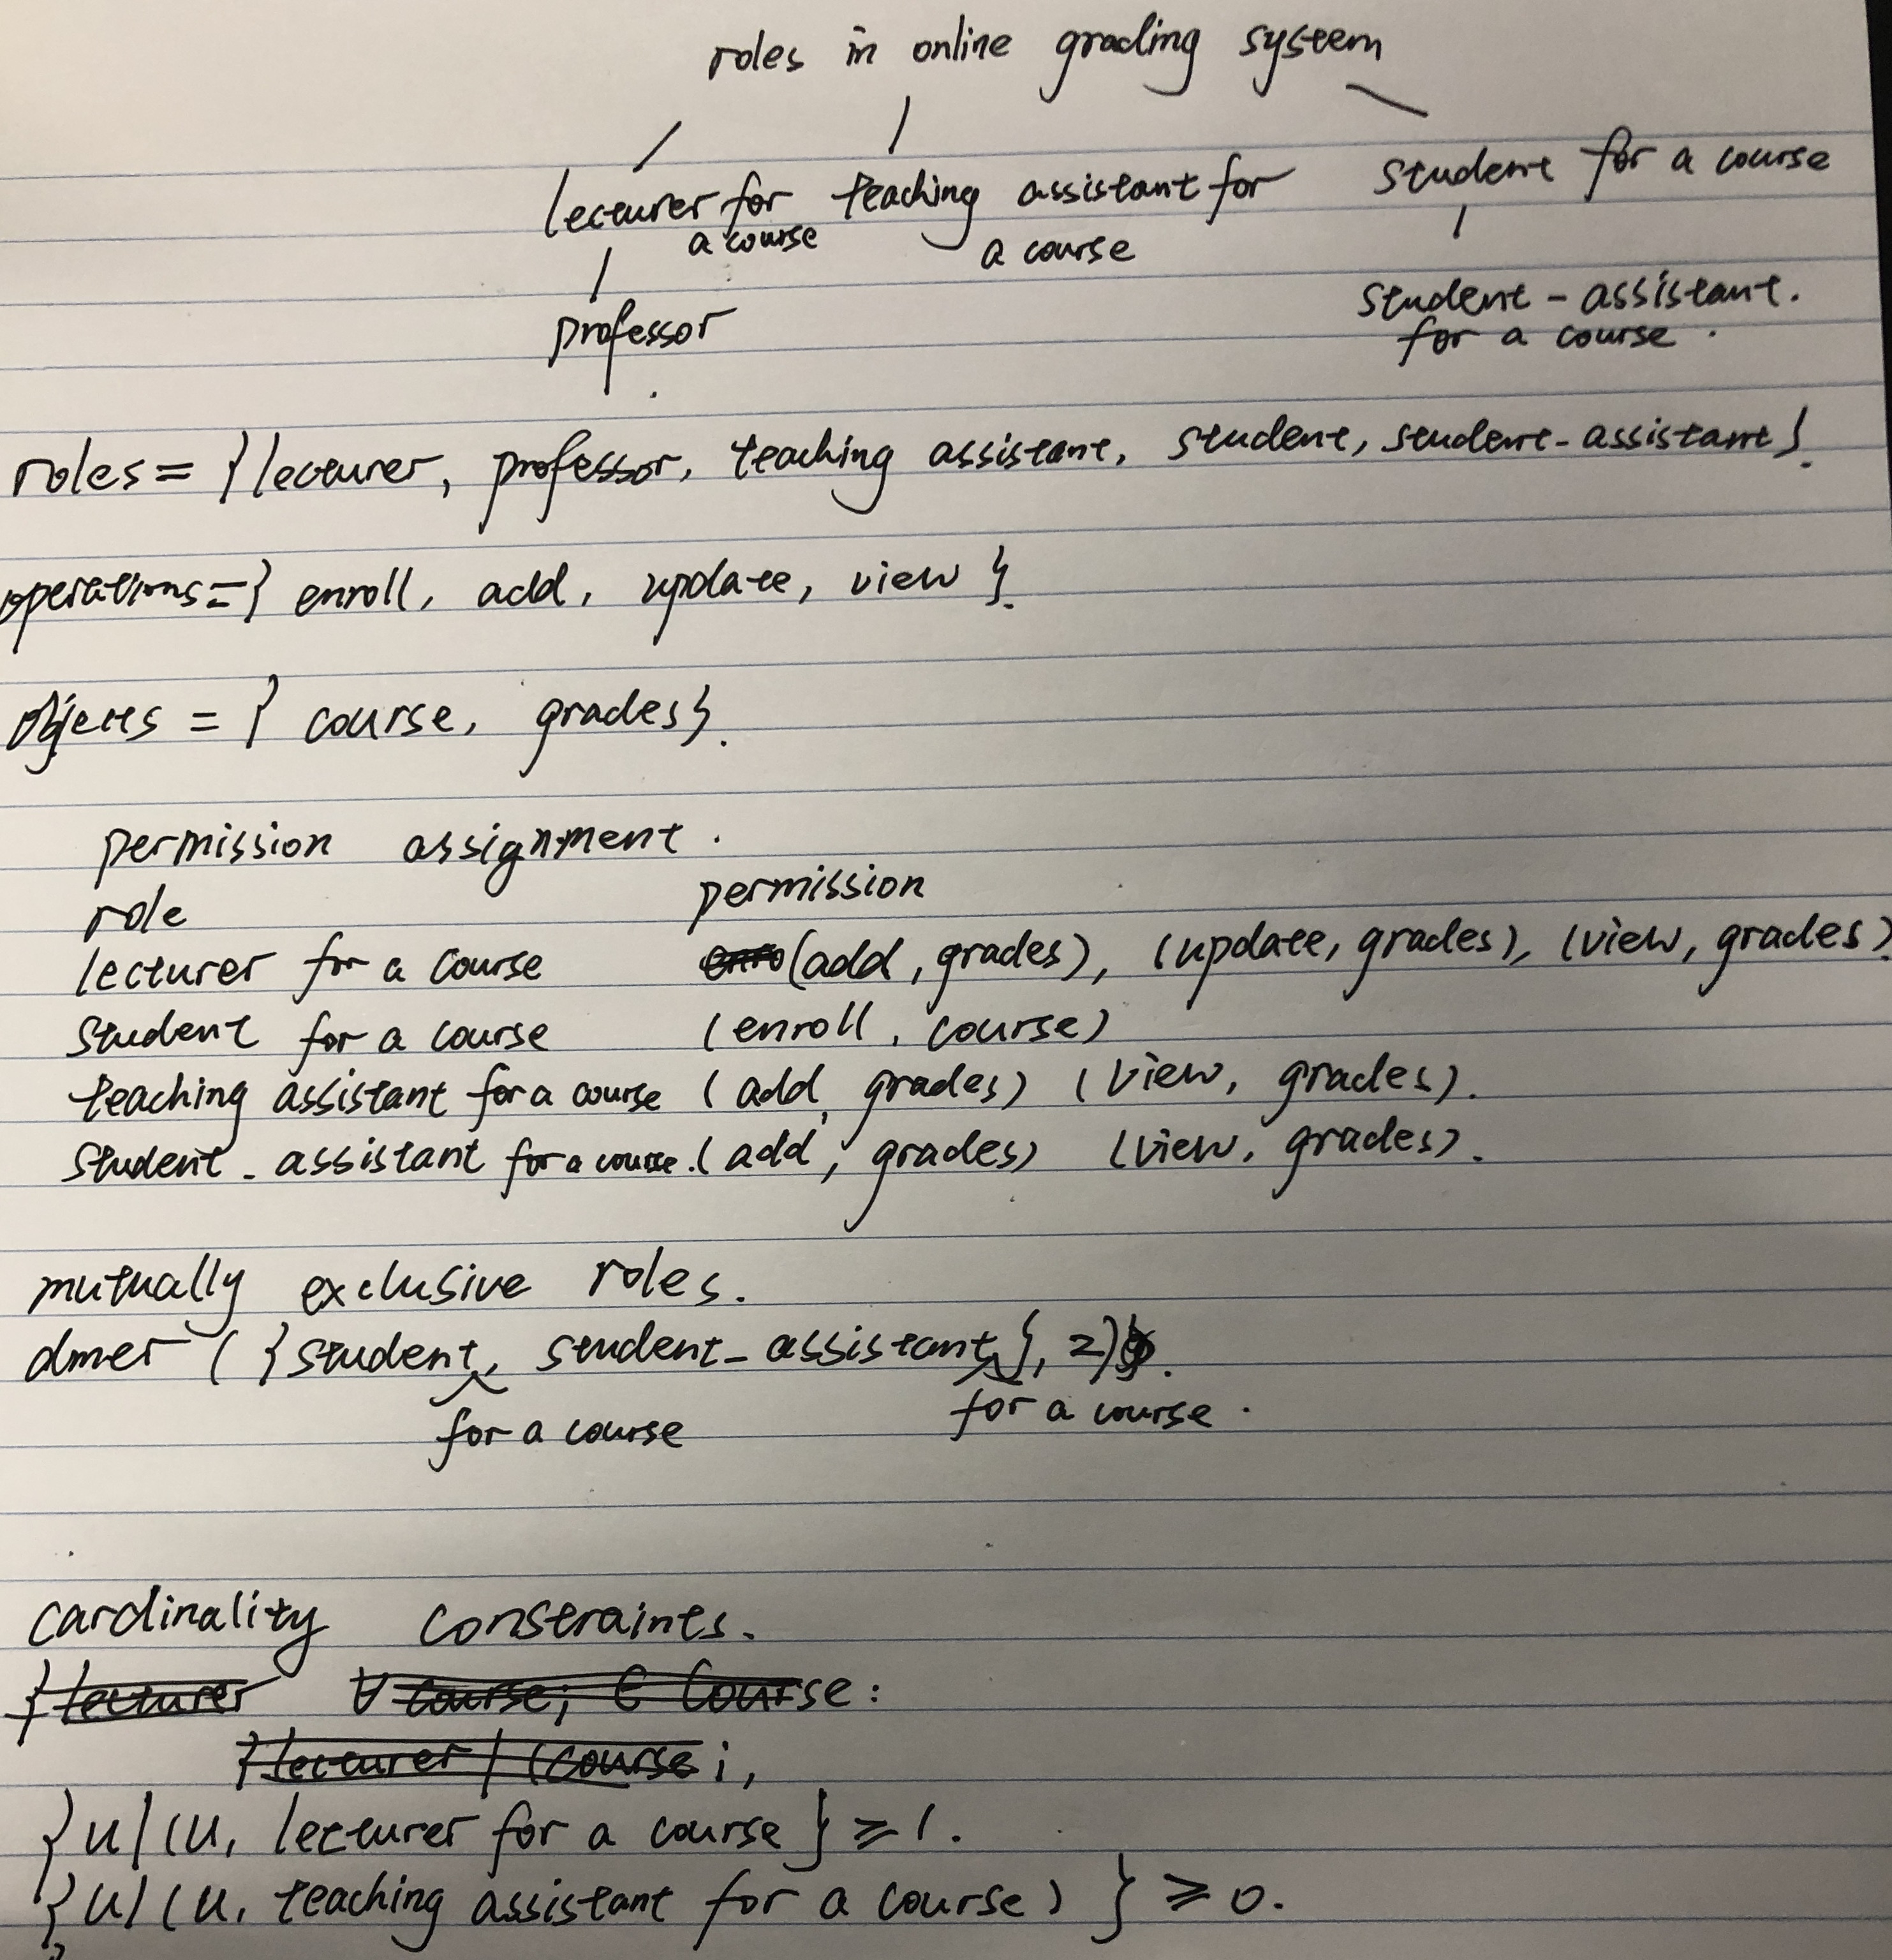 roles in online grading system
lecturer for teaching assistant for student for a course
a course a course
professor student - assistant.
for a course.
roles = {lecturer, professor, teaching assistant, student, student-assistant}.
operations = { enroll, add, update, view }.
objects = { course, grades}.
permission assignment.
role permission
lecturer for a course (add, grades), (update, grades), (view, grades)
student for a course (enroll, course)
teaching assistant for a course (add, grades) (view, grades).
student-assistant for a course. (add, grades) (view, grades).
mutually exclusive roles.
dmer ({student, student-assistant}, 2).
for a course for a course.
cardinality constraints.
{lecturer ∀ course; ∈ Course:
{lecturer | (course i,
{u|(u, lecturer for a course} ≥ 1.
{u|(u, teaching assistant for a course) } ≥ 0.